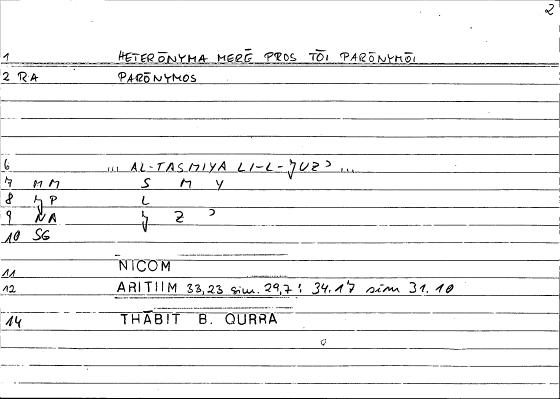 2
1 HETERŌNYMA MERĒ PROS TŌI PARŌNYMŌI
2 RA PARŌNYMOS
6 ... AL-TASMIYA LI-L-ǦUZʾ ...
7 MM S M Y
8 ǦP L
9 NA Ǧ Z ʾ
10 SG
11 NICOM
12 ARITIIM 33,23 sim. 29,7; 34.17 sim 31.10
14 THĀBIT B. QURRA